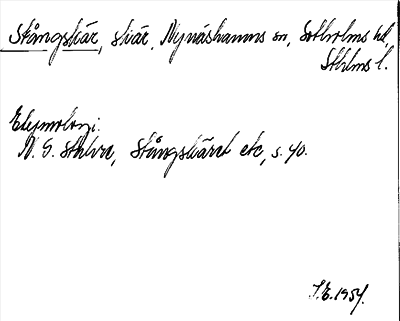 Stångskär, skär, Nynäshamns sn, Sotholms hd,
Sthlms l.
Etymologi:
N. G. Stångskäret etc, s. 40.
J.E. 1954.